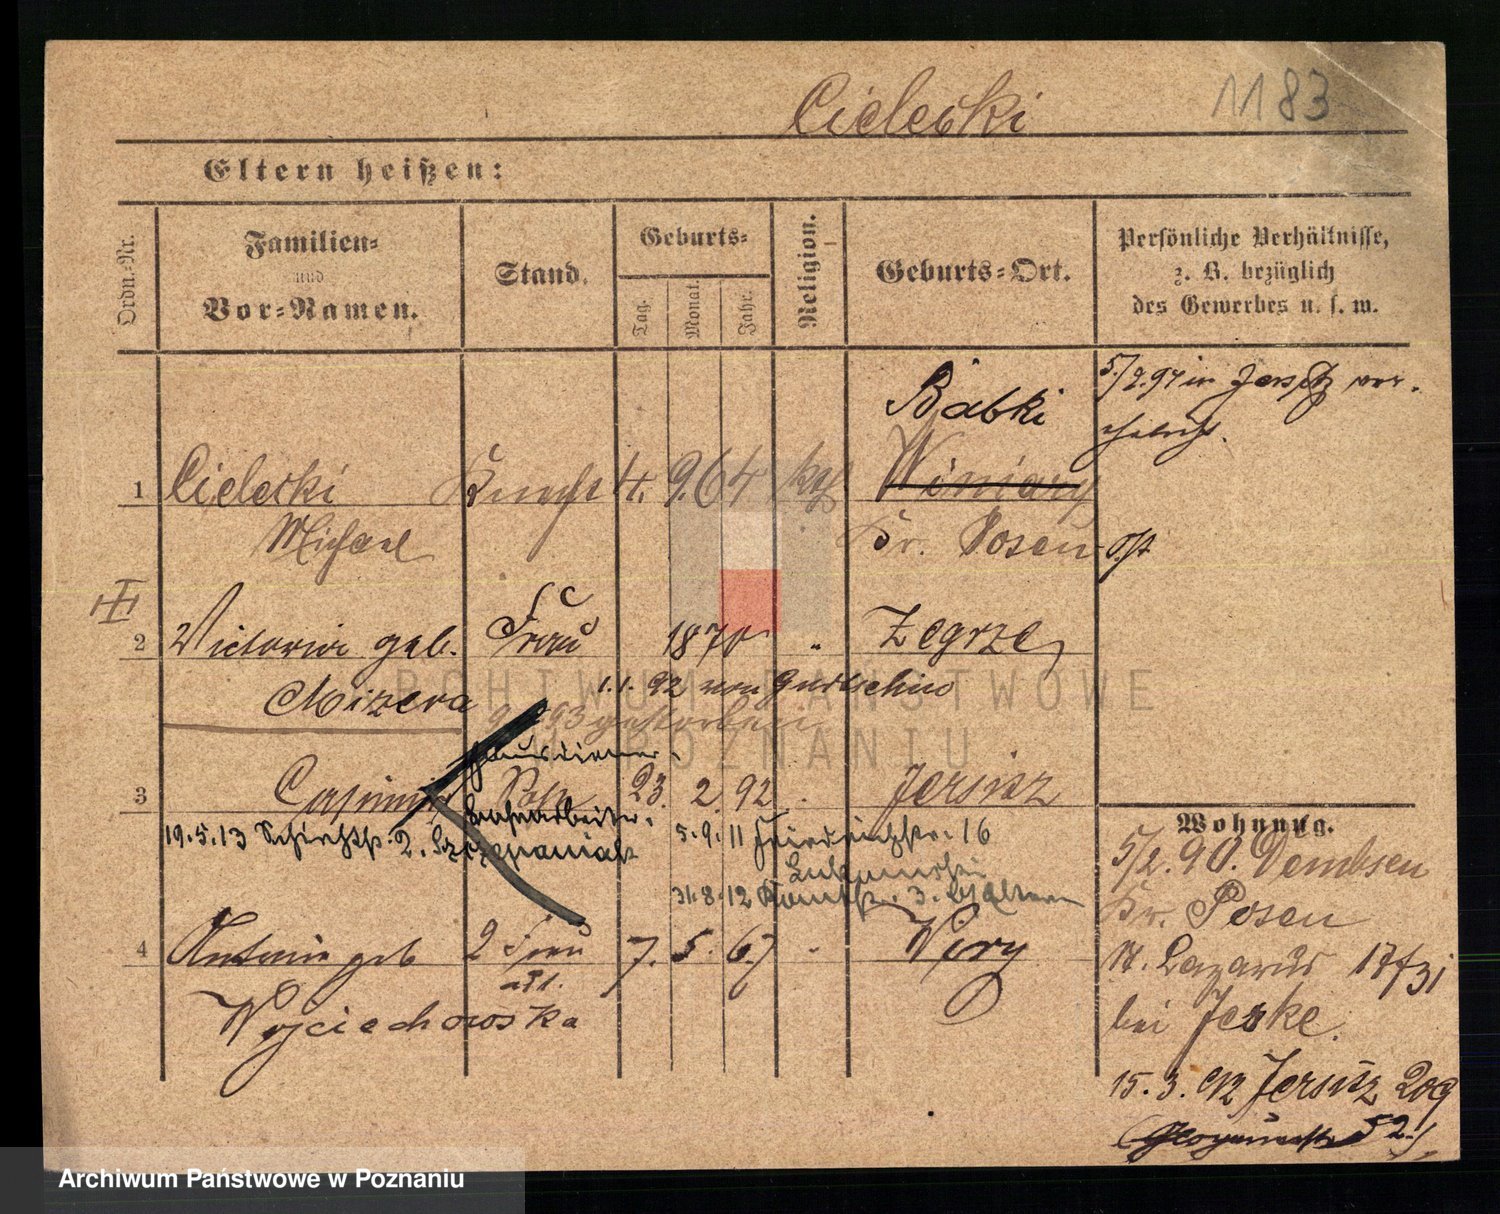 Cielecki 1183
Eltern heißen:
Ordn.-Nr.
Familien-
und
Vor-Namen.
Stand.
Geburts-
Tag.
Monat.
Jahr.
Religion.
Geburts-Ort.
Persönliche Verhältnisse,
z. B. bezüglich
des Gewerbes u. s. w.
Babki
5/2.97 in Jersitz ver-
1 Cielecki Knecht 4. 9. 64 kg Winiary
Michael
Kr. Posen Ost
2 Victoria geb. Frau 1870 " Zegrze
Mizera
1.1.92 von Gurtschin
93 gestorben
Hausdiener.
3 Casimir Sohn 23. 2. 92 Jersitz
Bahnarbeiter.
19.5.13 2. Szczepaniak
5.9.11 Friedrichstr. 16
31.8.12 3. b/ Eltern
4 Antonie geb 2 Frau 7. 5. 67 Wiry
Wojciechowska
Wohnung.
5/2.90. Dembsen
Kr. Posen
St. Lazarus
bei Jeske.
15.3.92 Jersitz 209
52
ARCHIWUM PAŃSTWOWE
W POZNANIU
Archiwum Państwowe w Poznaniu